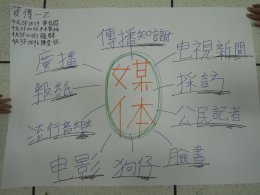 資傳一乙
傳播知識
廣播
電視新聞
報紙
媒体
採訪
公民記者
流行音樂
電影
狗仔
臉書